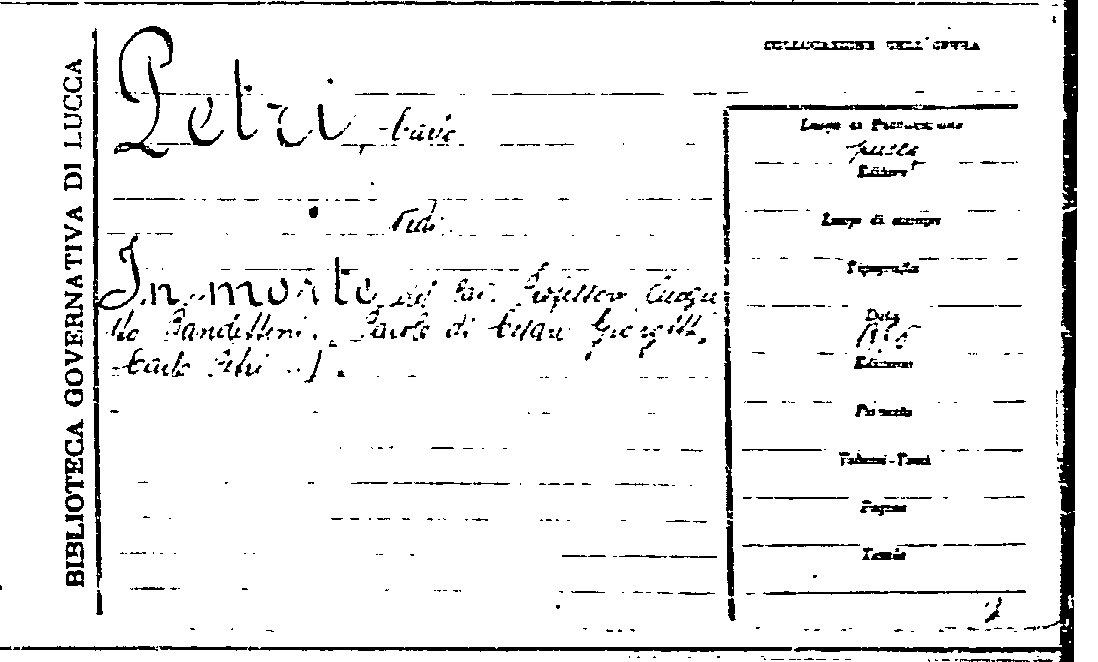 BIBLIOTECA GOVERNATIVA DI LUCCA
COLLOCAZIONE DELL'OPERA
Petri, Carlo
Vedi
In morte del Cav. Professore Augu
sto Bandettini. Parole di Cesare Giorgetti,
Carlo Petri
Luogo di Pubblicazione
Lucca
Editore
Luogo di stampa
Tipografia
Data
Edizione
Formato
Volumi-Tomi
Pagine
Tavole